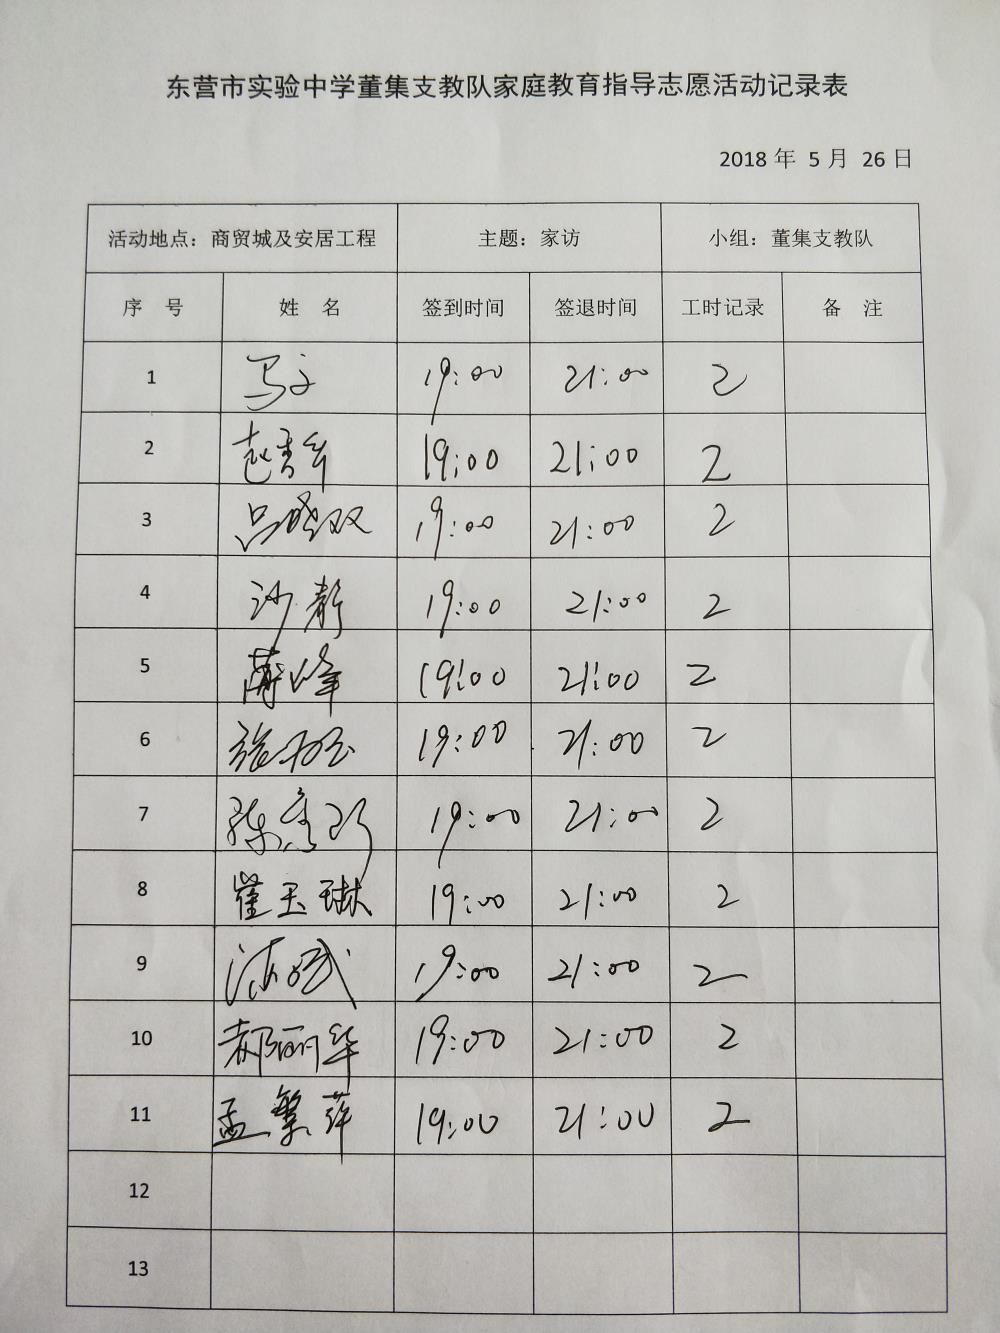 东营市实验中学董集支教队家庭教育指导志愿活动记录表
2018 年 5 月 26 日
活动地点：商贸城及安居工程 主题：家访 小组：董集支教队
序 号 姓 名 签到时间 签退时间 工时记录 备 注
1 19:00 21:00 2
2 19:00 21:00 2
3 吕晓双 19:00 21:00 2
4 沙静 19:00 21:00 2
5 薄峰 19:00 21:00 2
6 19:00 21:00 2
7 19:00 21:00 2
8 崔玉琳 19:00 21:00 2
9 19:00 21:00 2
10 郝丽华 19:00 21:00 2
11 孟繁萍 19:00 21:00 2
12
13